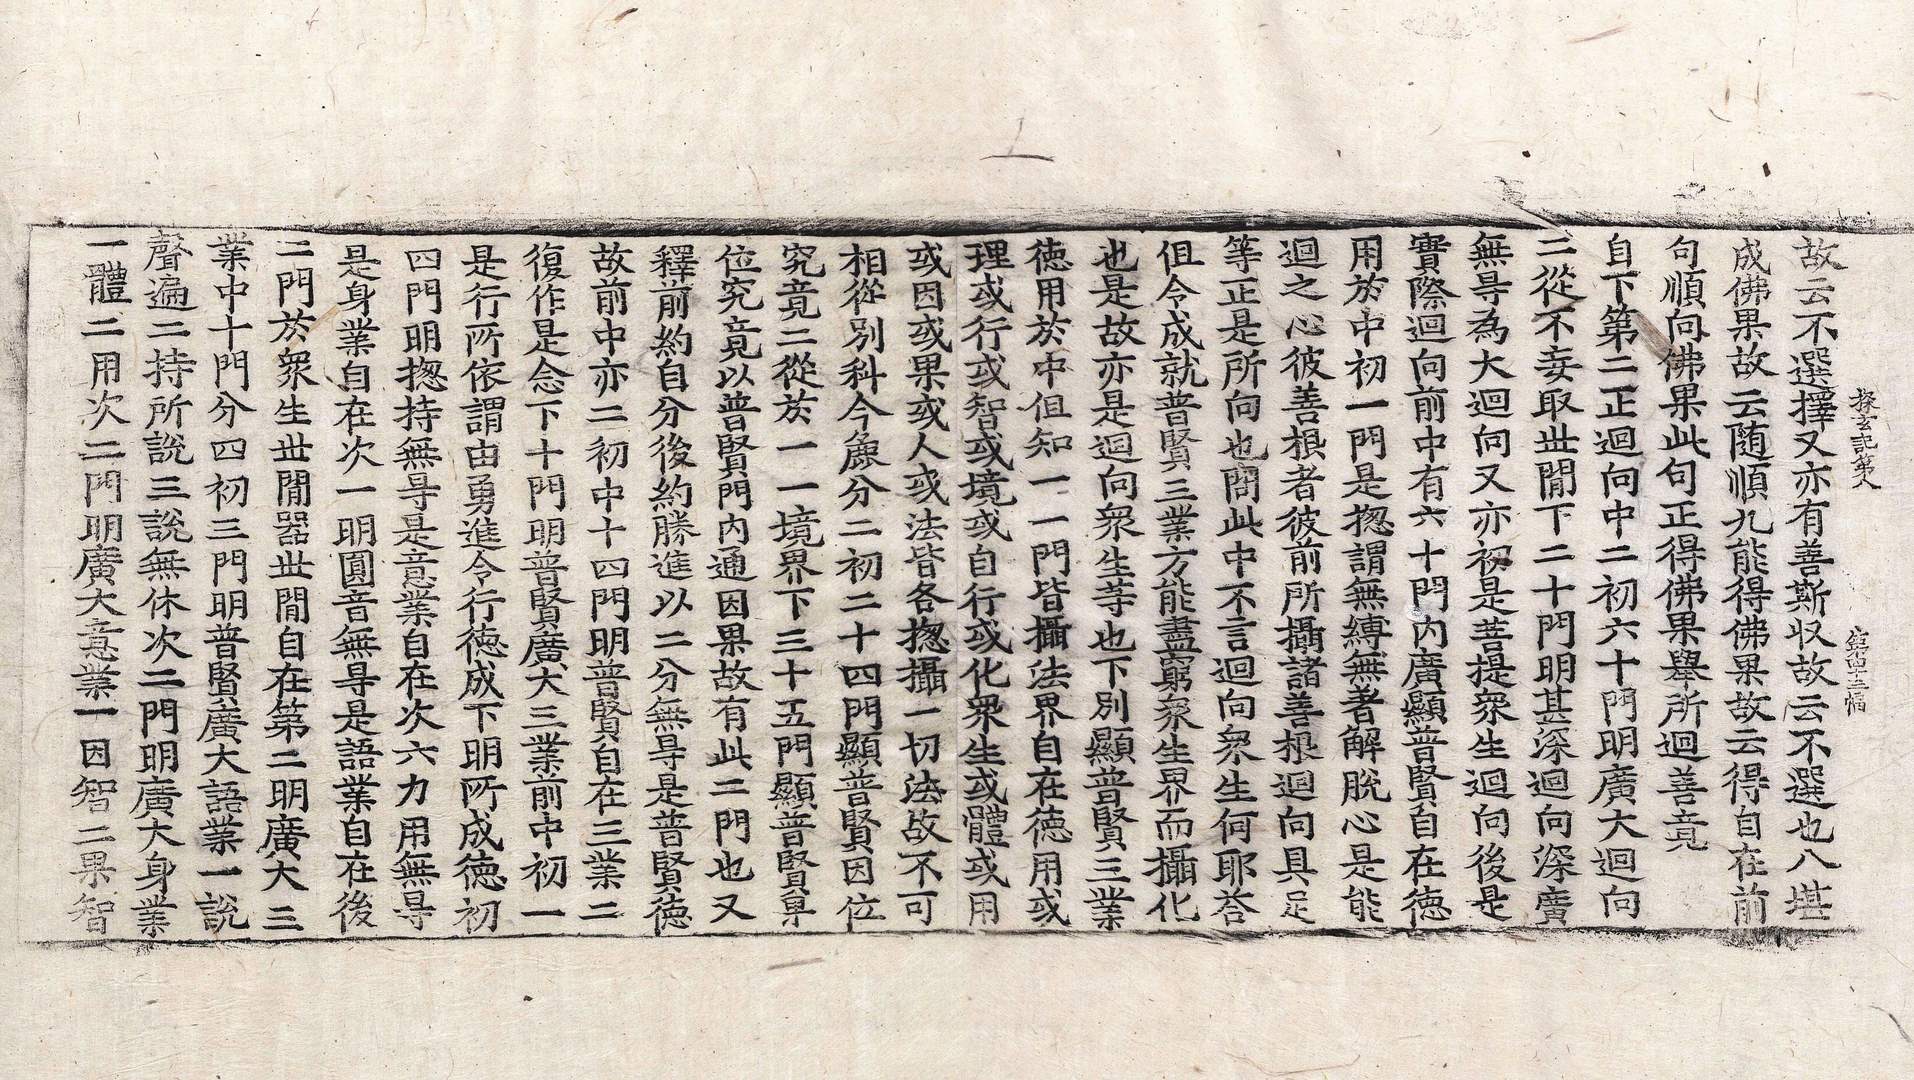 探玄記第八
第四十三幅
故云不選擇又亦有善斯収故云不選也八堪
成佛果故云随順九能得佛果故云得自在前
句順向佛果此句正得佛果舉所迴善竟
自下第二正迴向中二初六十門明廣大迴向
二從不妄取丗閒下二十門明甚深迴向深廣
無㝵為大迴向又亦初是菩提衆生迴向後是
實際迴向前中有六十門內廣顯普賢自在徳
用於中初一門是揔謂無縛無著解脫心是能
迴之心彼善根者彼前所攝諸善根迴向具足
等正是所向也問此中不言迴向衆生何耶荅
但令成就普賢三業方能盡窮衆生界而攝化
也是故亦是迴向衆生等也下別顯普賢三業
徳用於中但知一一門皆攝法界自在徳用或
理或行或智或境或自行或化衆生或體或用
或因或果或人或法皆各揔攝一切法故不可
相從別科今麁分二初二十四門顯普賢因位
究竟二從於一一境界下三十五門顯普賢果
位究竟以普賢門內通因果故有此二門也又
釋前約自分後約勝進以二分無㝵是普賢徳
故前中亦二初中十四門明普賢自在三業二
復作是念下十門明普賢廣大三業前中初一
是行所依謂由勇進令行徳成下明所成徳初
四門明揔持無㝵是意業自在次六力用無㝵
是身業自在次一明圓音無㝵是語業自在後
二門於衆生丗閒器丗閒自在第二明廣大三
業中十門分四初三門明普賢廣大語業一說
聲遍二持所說三說無休次二門明廣大身業
一體二用次二門明廣大意業一因智二果智